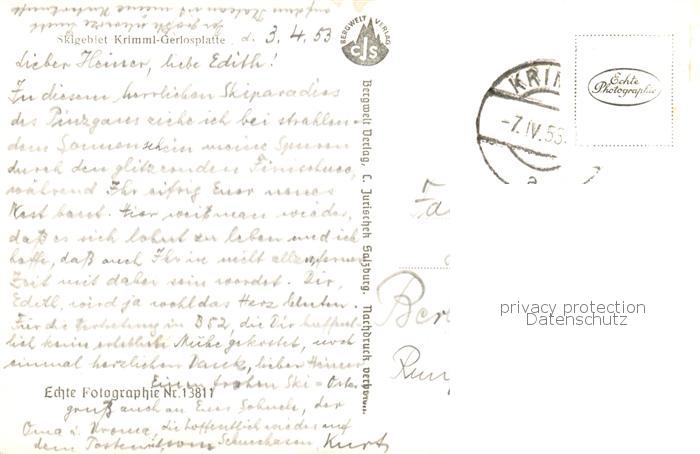 auf dem Plateau ist meine Unterkunft
Skigebiet Krimml-Gerlosplatte d. 3.4.53
Lieber Heiner, liebe Edith!
In diesem herrlichen Skiparadies
des Pinzgaus ziehe ich bei strahlen-
dem Sonnenschein meine Spuren
durch den glitzernden Firnschnee,
während Ihr eifrig Euer neues
Nest baut. Hier weiß man wieder,
daß es sich lohnt zu leben und ich
hoffe, daß auch Ihr in nicht allzu ferner
Zeit mit dabei sein werdet. Dir,
Edith, wird ja wohl das Herz bluten.
Für die Vertretung in B 52, die Dir hoffent-
lich keine erhebliche Mühe gekostet, noch
einmal herzlichen Dank, lieber Heiner
Einen frohen Ski = Oster
Echte Fotographie Nr. 13811
gruß auch an Eure der
Oma u. die hoffentlich wieder auf
dem Posten vom Schneehasen Kurt
BERGWELT VERLAG
CJS
Bergwelt Verlag, C. Jurischek Salzburg. Nachdruck verboten.
KRIM
-7.IV.53.
a
Echte
Photographie
Fa
Ber
Run
privacy protection
Datenschutz